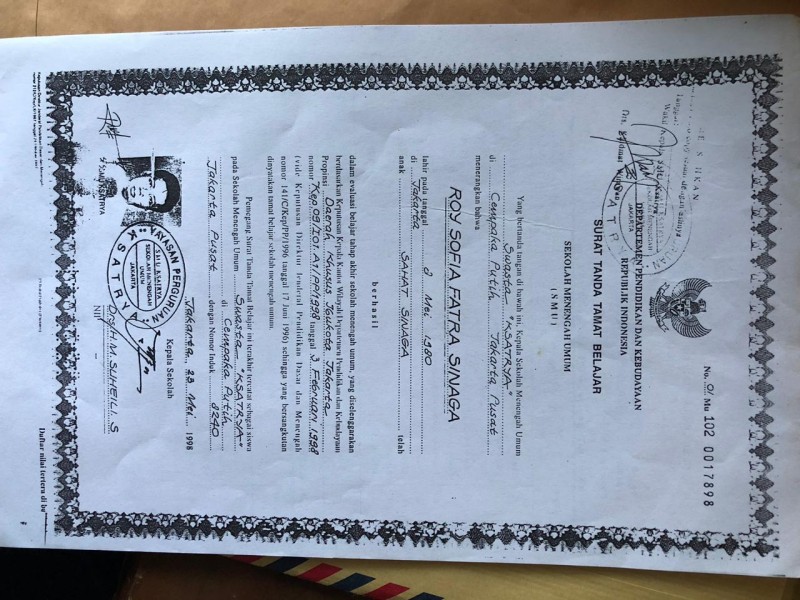 No. 01 Mu 102 0017898
DEPARTEMEN PENDIDIKAN DAN KEBUDAYAAN
REPUBLIK INDONESIA
SURAT TANDA TAMAT BELAJAR
SEKOLAH MENENGAH UMUM
( S M U )
Yang bertanda tangan di bawah ini, Kepala Sekolah Menengah Umum
Swasta "KSATRYA"
di Cempaka Putih Jakarta Pusat
menerangkan bahwa
ROY SOFIA FATRA SINAGA
lahir pada tanggal 2 Mei 1980
di Jakarta
anak SAHAT SINAGA telah
b e r h a s i l
dalam evaluasi belajar tahap akhir sekolah menengah umum, yang diselenggarakan
berdasarkan Keputusan Kepala Kantor Wilayah Departemen Pendidikan dan Kebudayaan
Propinsi Daerah Khusus Ibukota Jakarta
nomor tanggal 3 Februari 1998
(vide Keputusan Direktur Jenderal Pendidikan Dasar dan Menengah
nomor 141/C/Kep/PP/1996 tanggal 17 Juni 1996) sehingga yang bersangkutan
dinyatakan tamat belajar sekolah menengah umum.
Pemegang Surat Tanda Tamat Belajar ini terakhir tercatat sebagai siswa
pada Sekolah Menengah Umum Swasta "KSATRYA"
di Cempaka Putih
Jakarta Pusat dengan Nomor Induk 8240
Jakarta, 23 Mei 1998
Kepala Sekolah
YAYASAN PERGURUAN
KSATRYA
SEKOLAH MENENGAH
UMUM
JAKARTA
Drs. H. M. SUHEILI. S
NIP.
Daftar nilai tertera di